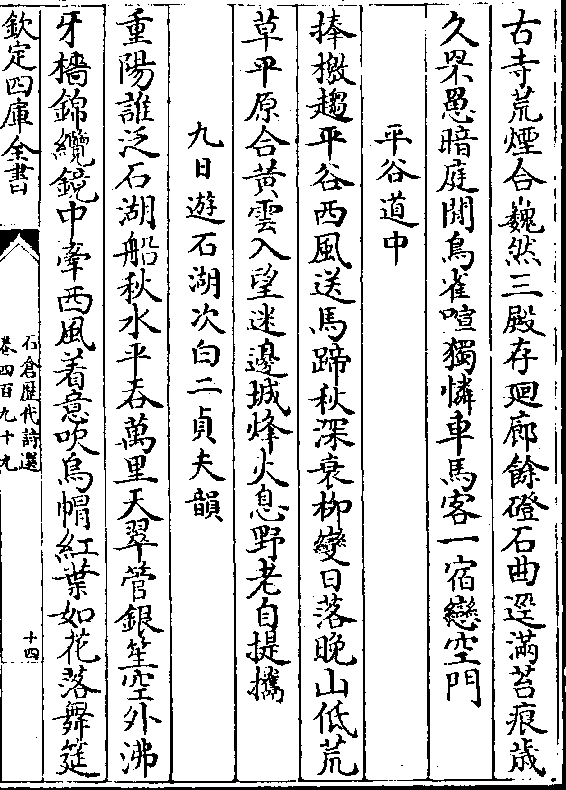 古寺荒煙合巍然三殿存廻廊餘磴石曲逕滿苔痕歳
久罘罳暗庭閒鳥雀喧獨憐車馬客一宿戀空門
平谷道中
捧檄趨平谷西風送馬蹄秋深衰栁變日落晩山低荒
草平原合黄雲入望迷邊城烽火息野老自提攜
九日遊石湖次白二貞夫韻
重陽誰泛石湖船秋水平吞萬里天翠管銀笙空外沸
牙檣錦纜鏡中牽西風着意吹烏帽紅葉如花落舞筵
欽定四庫全書
石倉歴代詩選
卷四百九十九
十四